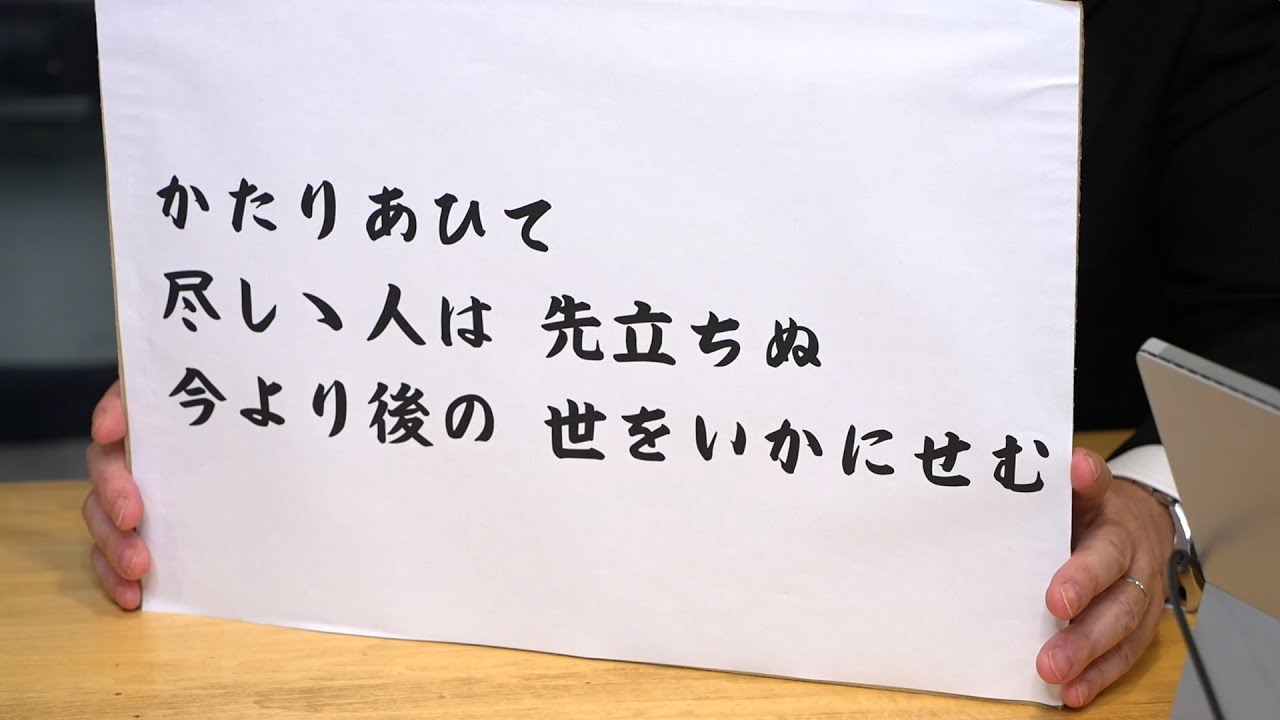 かたりあひて
尽しゝ人は 先立ちぬ
今より後の 世をいかにせむ